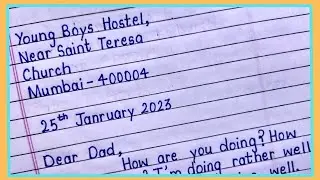 Young Boys Hostel,
Near Saint Teresa
Church
Mumbai - 400004
25th Janruary 2023
Dear Dad,
How are you doing? How
I'm doing rather well
well.